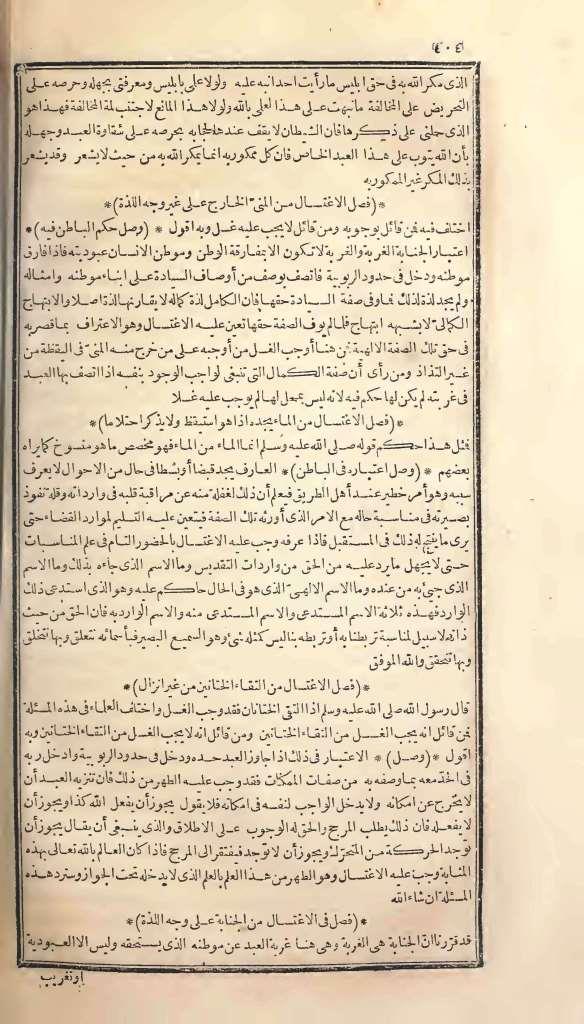 ٤٠٤
الذى مكر الله به فى حق ابليس مارأيت أحدا نبه عليه ولولا على بابليس ومعرفتى بجهله وحرصه على
التحريض على المخالفة مانبهت على هذا لعلمى بالله ولولا هذا المانع لاجتنب لمة المخالفة فهذا هو
الذى حملنى على ذكرها فان الشيطان لا يقف عندها لحجابه بحرصه على شقاوة العبد وجهله
بأن الله يتوب على هذا العبد الخاص فان كل ممكور به انما يمكر الله به من حيث لا يشعر وقد يشعر
بذلك المكر غير الممكور به
*(فصل الاغتسال من المنىّ الخارج على غير وجه اللذة)*
اختلف فيه فمن قائل بوجوبه ومن قائل لا يجب عليه غسل وبه اقول *(وصل حكم الباطن فيه)*
اعتبار الجنابة الغربة والغربة لا تكون الا بمفارقة الوطن وموطن الانسان عبوديته فاذا فارق
موطنه ودخل فى حدود الربوبية فاتصف بوصف من أوصاف السيادة على ابناء موطنه وامثاله
ولم يجد لذة لذلك فما وفى صفة السيادة حقها فان الكامل لذة كماله لا يقارنها لذة اصلا والابتهاج
الكمالىّ لا يشبهه ابتهاج فلما لم يوف الصفة حقها تعين عليه الاغتسال وهو الاعتراف بما قصر به
فى حق تلك الصفة الالهية فمن هنا أوجب الغسل من أوجبه على من خرج منه المنىّ فى اليقظة من
غير التذاذ ومن رأى أن صفة الكمال التى تنبغى لواجب الوجود بنفسه اذا اتصف بها العبد
فى غربته لم يكن لها حكم فيه لانه ليس بمحل لها لم يوجب عليه غسلا
*(فصل الاغتسال من الماء يجده اذا هو استيقظ ولا يذكر احتلاما)*
فمثل هذا حكم قوله صلى الله عليه وسلم انما الماء من الماء فهو مخصص ما هو منسوخ كما يراه
بعضهم *(وصل اعتباره فى الباطن)* العارف يجد قبضا أو بسطا فى حال من الاحوال لا يعرف
سببه وهو أمر خطير عند أهل الطريق فيعلم أن ذلك لغفلة منه عن مراقبة قلبه فى وارداته وقلة نفوذ
بصيرته فى مناسبة حاله مع الامر الذى أورثه تلك الصفة فيتعين عليه التسليم لموارد القضاء حتى
يرى ما ينتج له ذلك فى المستقبل فاذا عرفه وجب عليه الاغتسال بالحضور التام فى علم المناسبات
حتى لا يجهل ما يرد عليه من الحق من واردات التقديس وما الاسم الذى جاءه بذلك وما الاسم
الذى جىء به من عنده وما الاسم الالهىّ الذى هو فى الحال حاكم عليه وهو الذى استدعى ذلك
الوارد فهذه ثلاثة الاسم المستدعى والاسم المستدعى منه والاسم الوارد به فان الحق من حيث
ذاته لا سبيل لمناسبة تربطنا به أو تربطه بنا ليس كمثله شئ وهو السميع البصير فبأسمائه نتعلق وبها نتخلق
وبها نتحقق والله الموفق
*(فصل الاغتسال من التقاء الختانين من غير انزال)*
قال رسول الله صلى الله عليه وسلم اذا التقى الختانان فقد وجب الغسل واختلف العلماء فى هذه المسئلة
فمن قائل انه يجب الغسل من التقاء الختانين ومن قائل انه لا يجب الغسل من التقاء الختانين وبه
اقول *(وصل)* الاعتبار فى ذلك اذا جاوز العبد حده ودخل فى حدود الربوبية وادخل ربه
فى الحد معه بما وصفه به من صفات الممكنات فقد وجب عليه الطهر من ذلك فان تنزيه العبد أن
لا يخرج عن امكانه ولا يدخل الواجب لنفسه فى امكانه فلا يقول يجوز أن يفعل الله كذا ويجوز أن
لا يفعله فان ذلك يطلب المرجح والحق له الوجوب على الاطلاق والذى ينبغى أن يقال يجوز أن
توجد الحركة من المتحرك ويجوز أن لا توجد فيفتقر الى المرجح فاذا كان العالم بالله تعالى بهذه
المثابة وجب عليه الاغتسال وهو الطهر من هذا العلم بالعلم الذى لا يدخله تحت الجواز وسترد هذه
المسئلة ان شاء الله
*(فصل فى الاغتسال من الجنابة على وجه اللذة)*
قد قرّرنا انّ الجنابة هى الغربة وهى هنا غربة العبد عن موطنه الذى يستحقه وليس الا العبودية
او تغريب